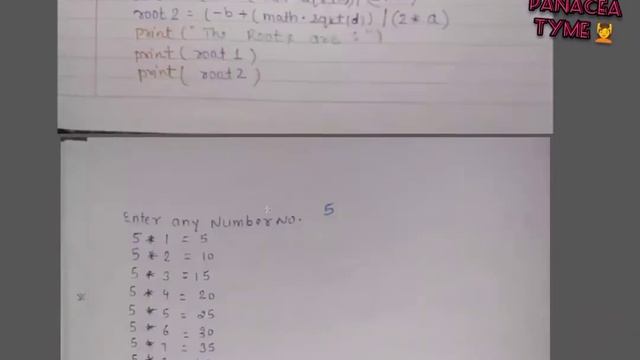 root 2 = (-b + (math.sqrt(d)) / (2* a)
print ("The Roots are :")
print ( root 1 )
print ( root 2 )
PANACEA
TYME
Enter any Number No. 5
5 * 1 = 5
5 * 2 = 10
5 * 3 = 15
5 * 4 = 20
5 * 5 = 25
5 * 6 = 30
5 * 7 = 35